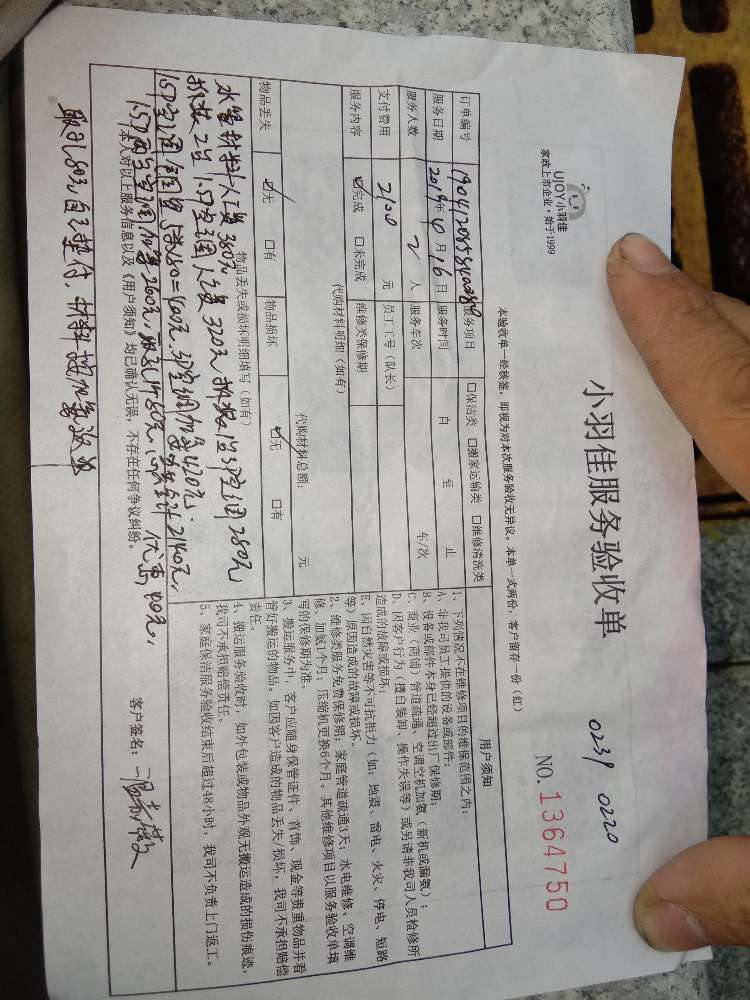 UJOY小羽佳
家政上市企业·始于1999
小羽佳服务验收单
0239 0220
NO. 1364750
本验收单一经核签，即视为对本次服务验收无异议，本单一式两份，客户留存一份（红）
订单编号
服务项目 □保洁类 □搬家运输类 □维修清洗类
服务日期 2019年 月16日 服务时间 自 至 止
服务人数 2 人 服务车次 车/次
支付费用 2100 元 员工工号（队长）
服务内容 ☑完成 □未完成 维修类保修期
代购材料明细（如有）
代购材料总额： 元
物品丢失 ☑无 □有 物品损坏 ☑无 □有
物品丢失或损坏明细填写（如有）
水管材料人工费380元
拆装2台1.5P空调人工费320元 拆装 空调280元
本人对以上服务信息以及《用户须知》均已确认无误，不存在任何争议纠纷。
客户签名：
用户须知
1、下列情况不在维修项目的维保范围之内：
A、非我司员工提供的设备或部件；
B、设备或部件本身已经超过出厂保修期；
C、商业（商铺）管道疏通、空调空机加氨（新机或漏氨）；
D、因客户行为（擅自装卸、操作失误等）或另请非我司人员检修所
造成的故障或损坏；
E、因自然灾害等不可抗拒力（如：地震、雷电、火灾、停电、短路
等）原因造成的故障或损坏。
2、维修类服务免费保修期：家庭管道疏通3天；水电维修、空调维
修、加氨1个月；压缩机更换6个月。其他维修项目以服务验收单填
写的保修期为准。
3、搬运服务中，客户应随身保管证件、首饰、现金等贵重物品并看
管好搬运的物品。如因客户造成的物品丢失/损坏，我司不承担赔偿
责任。
4、搬运服务验收时，如外包装或物品外观无搬运造成的损伤痕迹，
我司不承担赔偿责任。
5、家庭保洁服务验收结束后超过48小时，我司不负责上门返工。